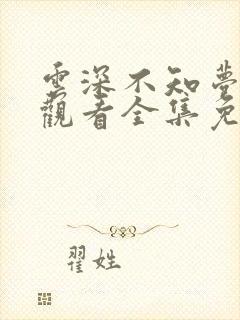 雲深不知夢
觀看全集免
翟姓